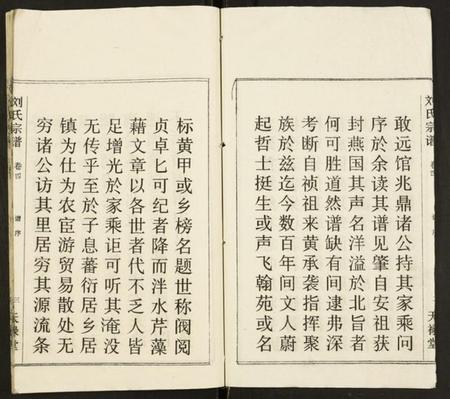 刘氏宗谱
卷四
谱序
天禄堂
敢远馆兆鼎诸公持其家乘问
序於余读其谱见肇自安祖获
封燕国其声名洋溢於北旨者
何可胜道然谱缺有间逮弗深
考断自祯祖来黄承袭指挥聚
族於兹迄今数百年间文人蔚
起哲士挺生或声飞翰苑或名
标黄甲或乡榜名题世称阀阅
贞卓匕可纪者降而泮水芹藻
藉文章以各世者代不乏人皆
足增光於家乘讵可听其淹没
无传乎至於子息蕃衍居乡居
镇为仕为农宦游贸易散处无
穷诸公访其里居穷其源流条
刘氏宗谱
卷四
谱序
三
天禄堂